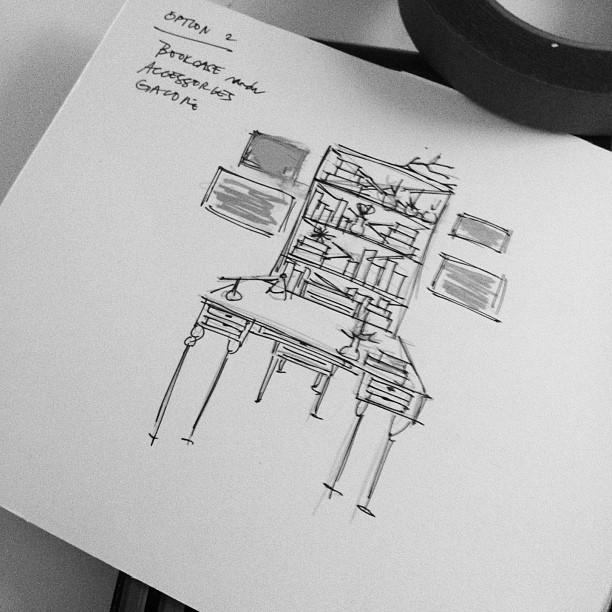 OPTION 2
BOOKCASE
ACCESSORIES
GALORE